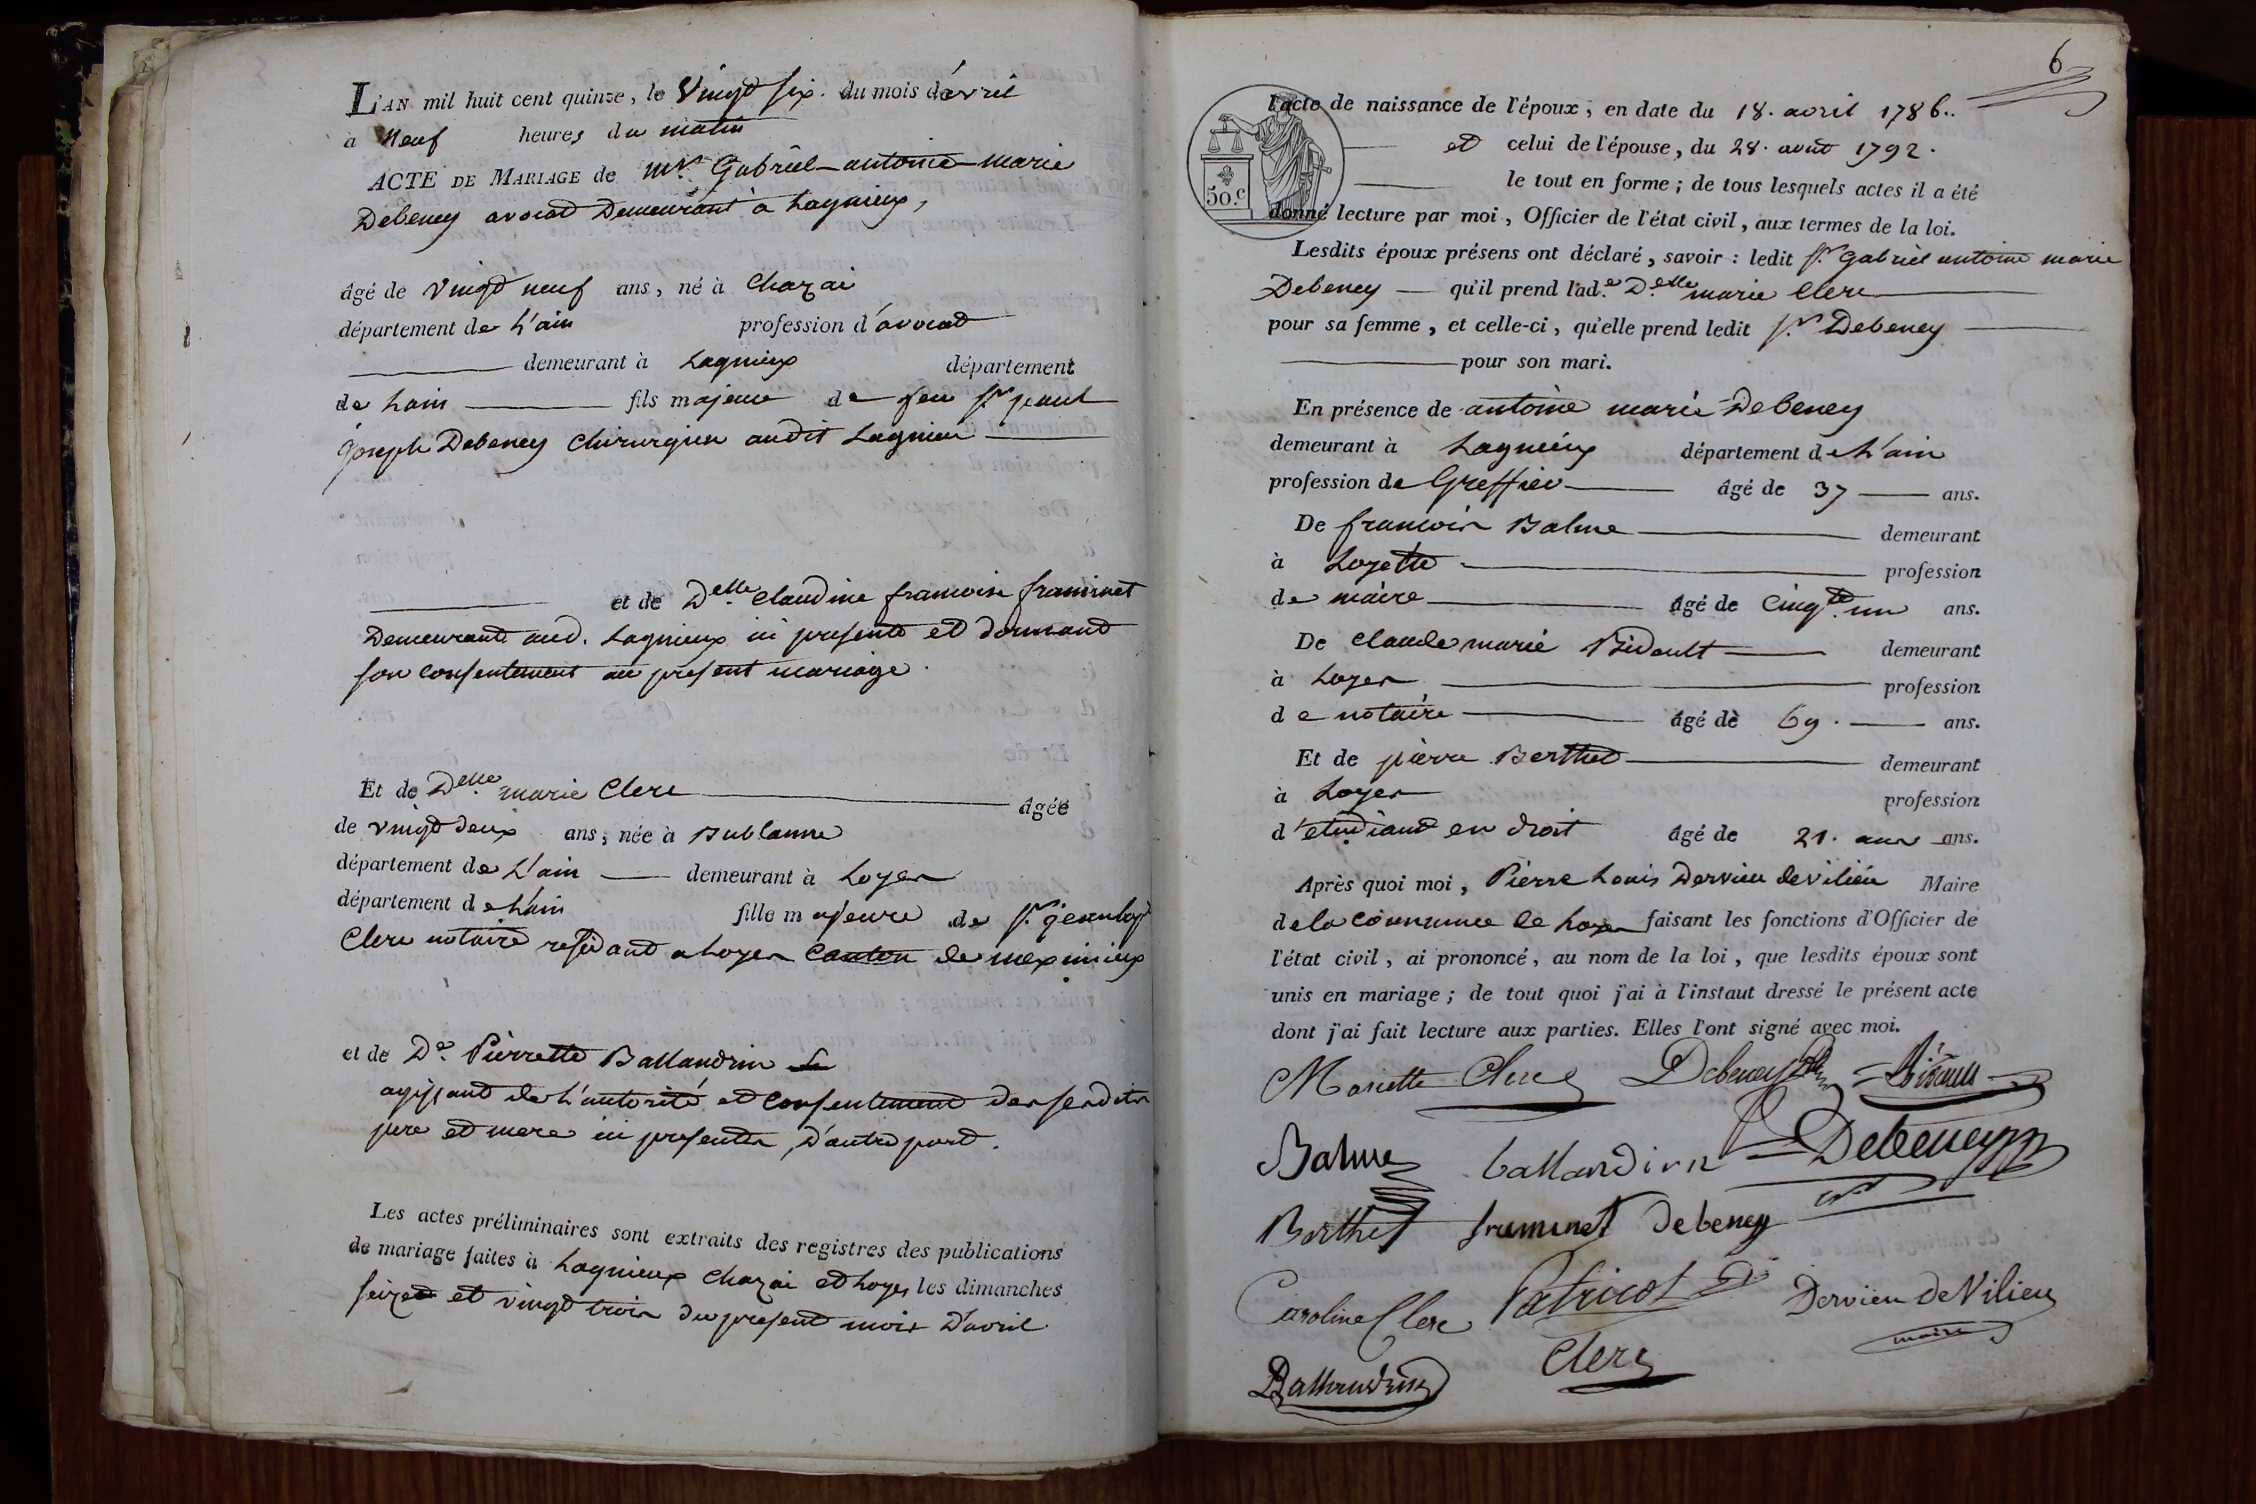 L'AN mil huit cent quinze, le Vingt six. du mois d'avril
à Neuf heures du matin
ACTE DE MARIAGE de Mr. Gabriel antoine marie
Debeney avocat Demeurant à Lagnieux,
âgé de vingt neuf ans, né à Chazai
département de L'ain profession d'avocat
demeurant à Lagnieux département
de Lain fils majeur de feu Sr. paul
Joseph Debeney Chirurgien audit Lagnieu
et de Delle Claudine francoise
Demeurante aud. Lagnieux ici presente et donnant
son consentement au present mariage.
Et de Delle marie Clerc âgée
de vingt deux ans, née à Bublanne
département de L'ain demeurant à Loyes
département de Lain fille majeure de Sr. jean
Clerc notaire residant a Loyes Canton de meximieux
et de De. Pierrette Ballandrin
agissant de L'autorité et Consentement de ses dits
pere et mere ici presents, D'autre part.
Les actes préliminaires sont extraits des registres des publications
de mariage faites à Lagnieux Chazai et Loyes les dimanches
seize et vingt trois du present mois D'avril
6
50.c
l'acte de naissance de l'époux, en date du 18. avril 1786..
et celui de l'épouse, du 28. aout 1792.
le tout en forme ; de tous lesquels actes il a été
donné lecture par moi, Officier de l'état civil, aux termes de la loi.
Lesdits époux présens ont déclaré, savoir : ledit Sr. Gabriel antoine marie
Debeney qu'il prend lad.e Delle marie Clerc
pour sa femme, et celle-ci, qu'elle prend ledit Sr. Debeney
pour son mari.
En présence de antoine marie Debeney
demeurant à Lagnieux département de L'ain
profession de Greffier âgé de 37 ans.
De francois Balme demeurant
à Loyette profession
de maire âgé de Cinqte. un ans.
De Claude marie Bidault demeurant
à Loyes profession
de notaire âgé de 69. ans.
Et de pierre Berthet demeurant
à Loyes profession
d'etudiant en droit âgé de 21. ans ans.
Après quoi moi, Pierre Louis Dervieu devilieu Maire
de la Commune de Loyes faisant les fonctions d'Officier de
l'état civil, ai prononcé, au nom de la loi, que lesdits époux sont
unis en mariage ; de tout quoi j'ai à l'instant dressé le présent acte
dont j'ai fait lecture aux parties. Elles l'ont signé avec moi.
Mariette Clerc Debeney Bidault
Balme ballandrin Debeney
Berthet fruminet debeney
Caroline Clerc Patricot Dervieu DeVilieu
maire
Ballandrin Clerc